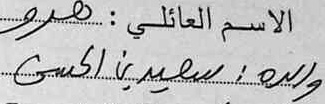 الاسم العائلي : هدو
والده : سعيد بن الحسن